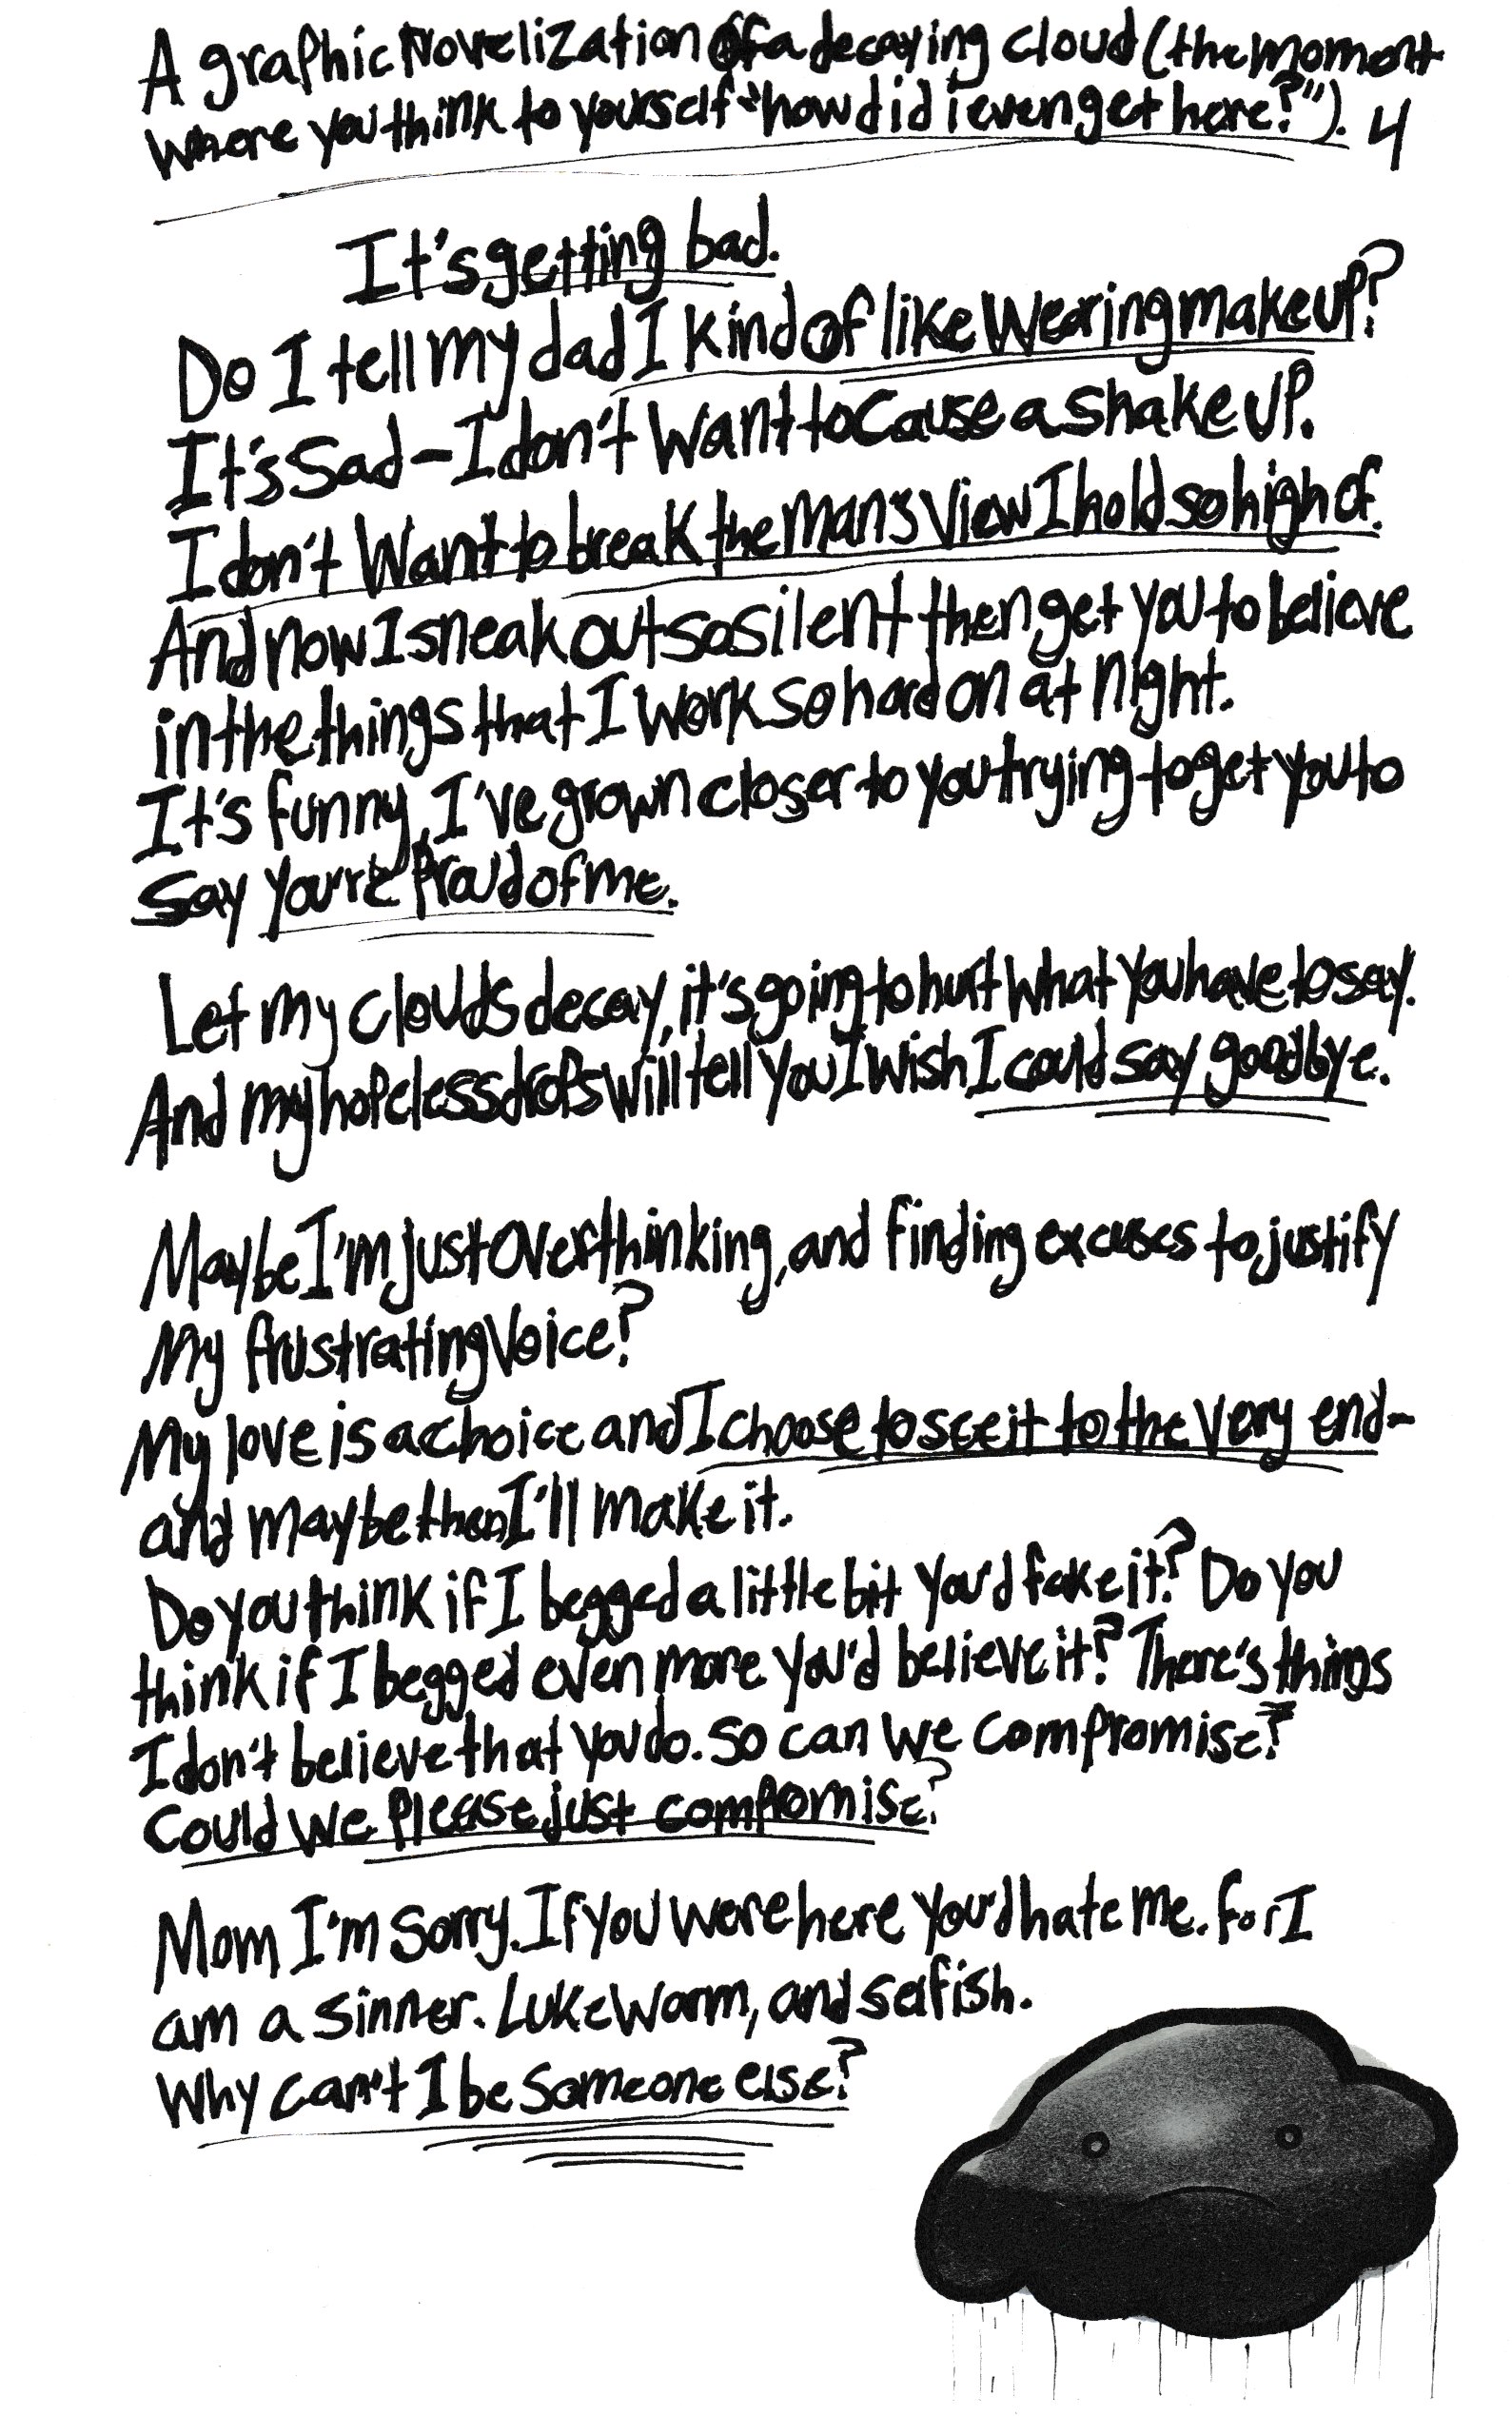 A graphic Novelization of a decaying cloud (the moment
where you think to yourself "how did i even get here?"). 4
It's getting bad.
Do I tell my dad I kind of like wearing makeup?
It's sad - I don't want to cause a shake up.
I don't want to break the man's view I hold so high of.
And now I sneak out so silent then get you to believe
in the things that I work so hard on at night.
It's funny, I've grown closer to you trying to get you to
say you're proud of me.
Let my clouds decay, it's going to hurt what you have to say.
And my hopeless drops will tell you I wish I could say goodbye.
Maybe I'm just overthinking, and finding excuses to justify
my frustrating voice?
My love is a choice and I choose to see it to the very end-
and maybe then I'll make it.
Do you think if I begged a little bit you'd fake it? Do you
think if I begged even more you'd believe it? There's things
I don't believe that you do. So can we compromise?
Could we please just compromise?
Mom I'm sorry. If you were here you'd hate me. For I
am a sinner. Lukewarm, and selfish.
Why can't I be someone else?